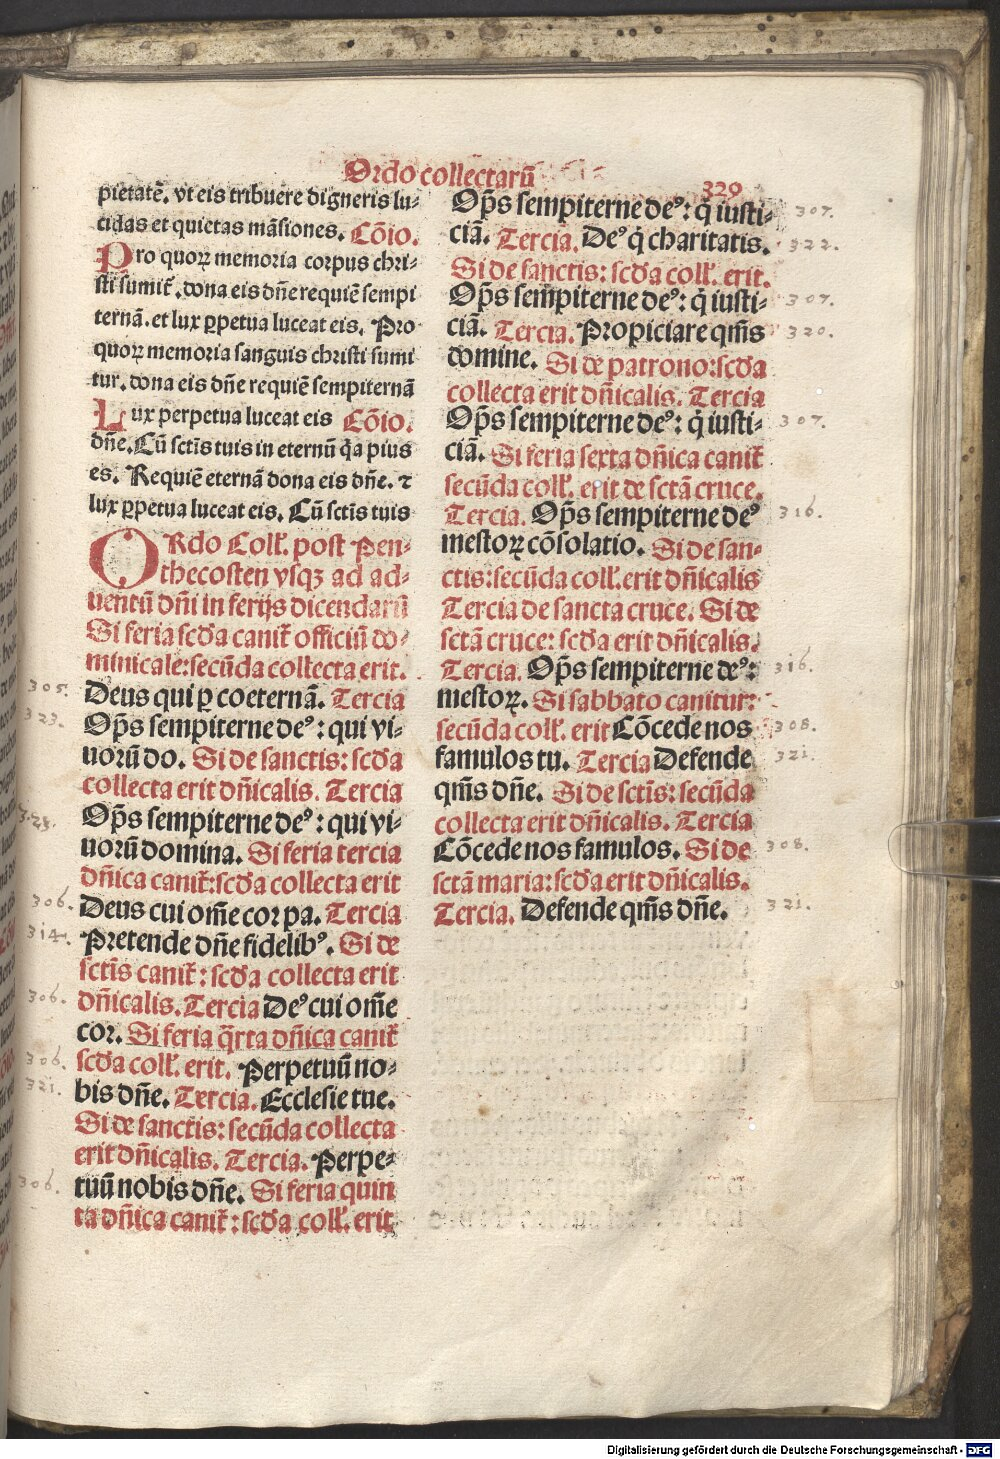 Ordo collectarũ
329
pietatẽ. vt eis tribuere digneris lu-
cidas et quietas mãsiones. Cõio.
Pro quoꝝ memoria corpus chri-
sti sumit᷑. dona eis dñe requiẽ sempi
ternã. et lux ꝑpetua luceat eis. Pro
quoꝝ memoria sanguis christi sumi
tur. dona eis dñe requiẽ sempiternã
Lux perpetua luceat eis Cõio.
dñe. Cũ sctĩs tuis in eternũ q̃a pius
es. Requiẽ eternã dona eis dñe. ⁊
lux ꝑpetua luceat eis. Cũ sctĩs tuis
ORdo Coll᷑. post Pen-
thecosten vsqꝫ ad ad-
uentũ dñi in ferijs dicendarũ
Si feria scd̃a canit᷑ officiũ do-
minicale: secũda collecta erit.
305.
Deus qui ꝑ coeternã. Tercia
323.
Op̃s sempiterne deꝰ: qui vi-
uorũ do. Si de sanctis: scd̃a
collecta erit dñicalis. Tercia
323.
Op̃s sempiterne deꝰ: qui vi-
uorũ domina. Si feria tercia
dñica canit᷑: scd̃a collecta erit
306.
Deus cui om̃e cor pa. Tercia
314.
Pretende dñe fidelibꝰ. Si de
sctĩs canit᷑: scd̃a collecta erit
306.
dñicalis. Tercia Deꝰ cui om̃e
cor. Si feria q̃rta dñica canit᷑
306.
scd̃a coll᷑. erit. Perpetuũ no-
321.
bis dñe. Tercia. Ecclesie tue.
Si de sanctis: secũda collecta
erit dñicalis. Tercia. Perpe-
306.
tuũ nobis dñe. Si feria quin
ta dñica canit᷑: scd̃a coll᷑. erit
Op̃s sempiterne deꝰ: q̃ iusti-
307.
ciã. Tercia. Deꝰ q̃ charitatis.
322.
Si de sanctis: scd̃a coll᷑. erit.
Op̃s sempiterne deꝰ: q̃ iusti-
307.
ciã. Tercia. Propiciare qm̃s
320.
domine. Si de patrono: scd̃a
collecta erit dñicalis. Tercia
Op̃s sempiterne deꝰ: q̃ iusti-
307.
ciã. Si feria sexta dñica canit᷑
secũda coll᷑. erit de sctã cruce.
Tercia. Op̃s sempiterne deꝰ
316.
mestoꝝ cõsolatio. Si de san-
ctis: secũda coll᷑. erit dñicalis
Tercia de sancta cruce. Si de
sctã cruce: scd̃a erit dñicalis.
Tercia. Op̃s sempiterne deꝰ:
316.
mestoꝝ. Si sabbato canitur:
secũda coll᷑. erit Cõcede nos
308.
famulos tu. Tercia Defende
321.
qm̃s dñe. Si de sctĩs: secũda
collecta erit dñicalis. Tercia
Cõcede nos famulos. Si de
308.
sctã maria: scd̃a erit dñicalis.
Tercia. Defende qm̃s dñe.
321.
Digitalisierung gefördert durch die Deutsche Forschungsgemeinschaft - DFG